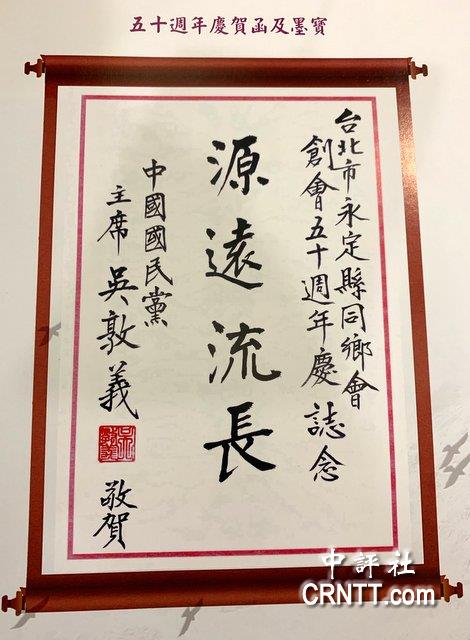 五十週年慶賀函及墨寶
台北市永定縣同鄉會
創會五十週年慶 誌念
源遠流長
中國國民黨
主席 吳敦義 敬賀
中評社
CRNTT.com